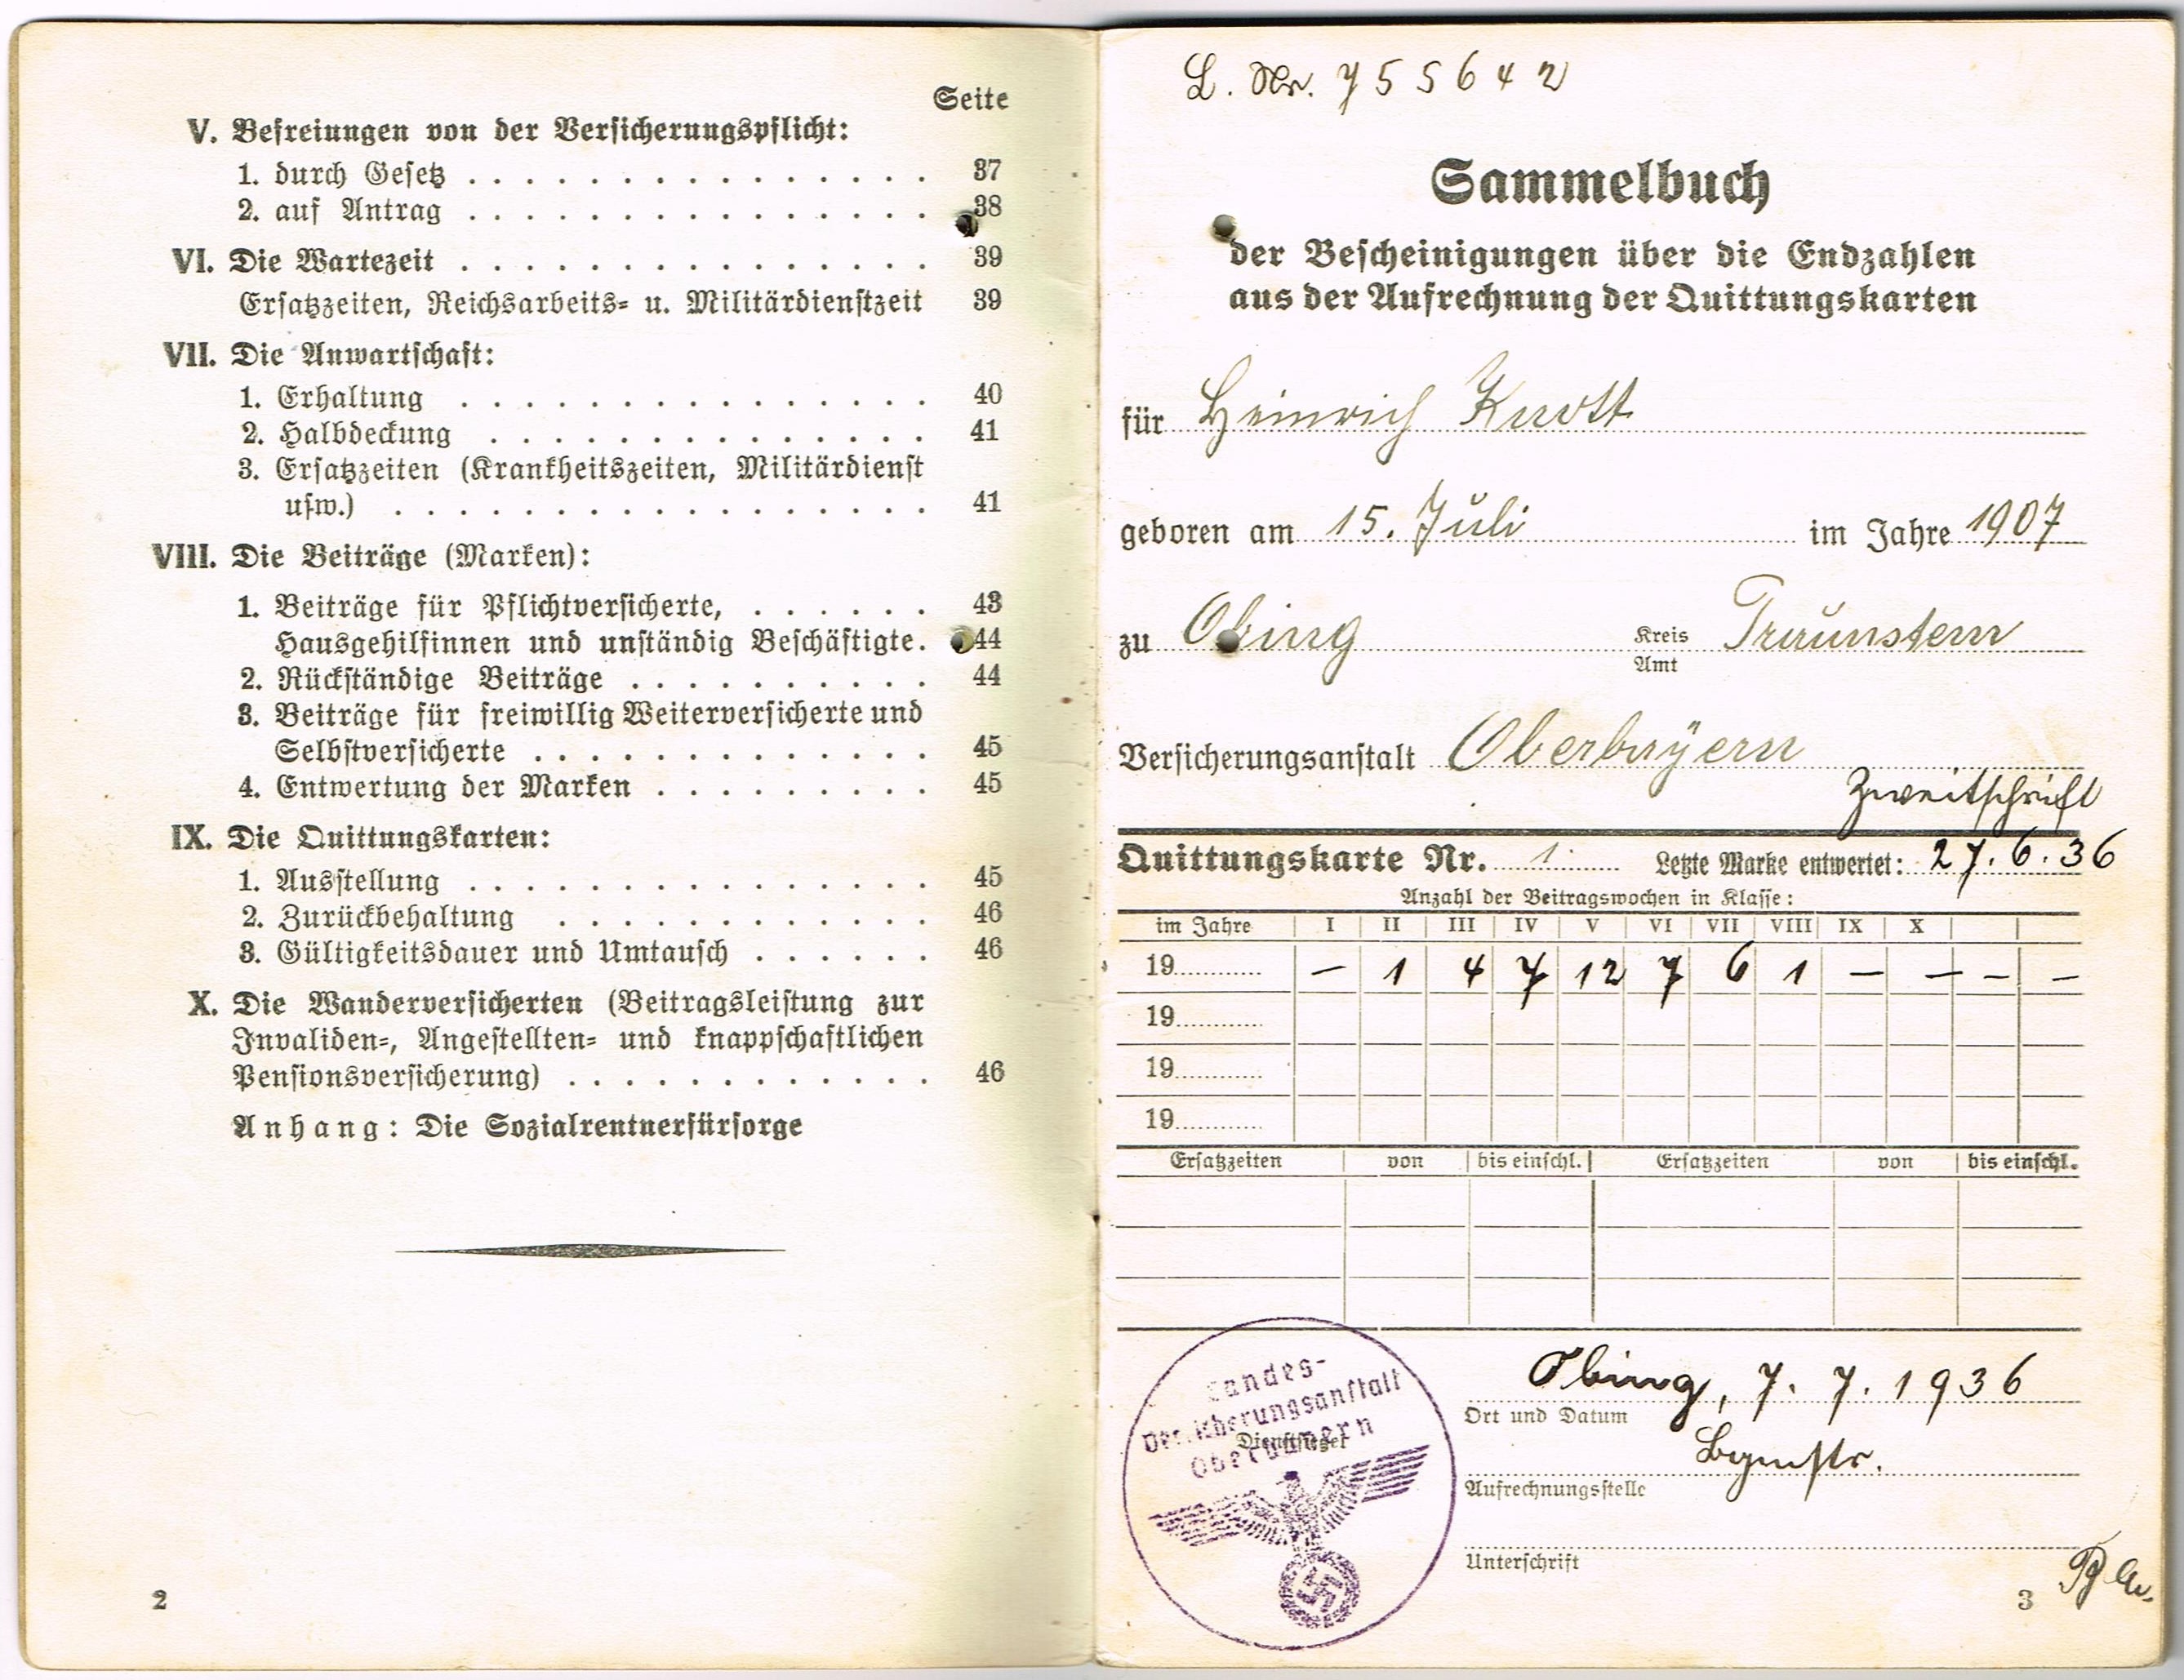 Seite
V. Befreiungen von der Versicherungspflicht:
1. durch Gesetz . . . . . . . . . . . . . . . . 37
2. auf Antrag . . . . . . . . . . . . . . . . 38
VI. Die Wartezeit . . . . . . . . . . . . . . . . 39
Ersatzzeiten, Reichsarbeits- u. Militärdienstzeit 39
VII. Die Anwartschaft:
1. Erhaltung . . . . . . . . . . . . . . . . 40
2. Halbdeckung . . . . . . . . . . . . . . . 41
3. Ersatzzeiten (Krankheitszeiten, Militärdienst
usw.) . . . . . . . . . . . . . . . . . . 41
VIII. Die Beiträge (Marken):
1. Beiträge für Pflichtversicherte, . . . . . . 43
Hausgehilfinnen und unständig Beschäftigte. 44
2. Rückständige Beiträge . . . . . . . . . . . 44
3. Beiträge für freiwillig Weiterversicherte und
Selbstversicherte . . . . . . . . . . . . . 45
4. Entwertung der Marken . . . . . . . . . 45
IX. Die Quittungskarten:
1. Ausstellung . . . . . . . . . . . . . . . . 45
2. Zurückbehaltung . . . . . . . . . . . . . 46
3. Gültigkeitsdauer und Umtausch . . . . . . 46
X. Die Wanderversicherten (Beitragsleistung zur
Invaliden-, Angestellten- und knappschaftlichen
Pensionsversicherung) . . . . . . . . . . . . 46
Anhang: Die Sozialrentnerfürsorge
2
L. Nr. 755642
Sammelbuch
der Bescheinigungen über die Endzahlen
aus der Aufrechnung der Quittungskarten
für Heinrich Knott
geboren am 15. Juli im Jahre 1907
zu Obing Kreis Traunstein
Amt
Versicherungsanstalt Oberbayern
Zweitschrift
Quittungskarte Nr. 1. Letzte Marke entwertet: 27.6.36
Anzahl der Beitragswochen in Klasse:
im Jahre I II III IV V VI VII VIII IX X
19 – 1 4 7 12 7 6 1 – – – –
19
19
19
Ersatzzeiten von bis einschl. Ersatzzeiten von bis einschl.
Landes-
versicherungsanstalt
Oberbayern
Dienstsiegel
Obing, 7. 7. 1936
Ort und Datum
Bgmstr.
Aufrechnungsstelle
Unterschrift
3